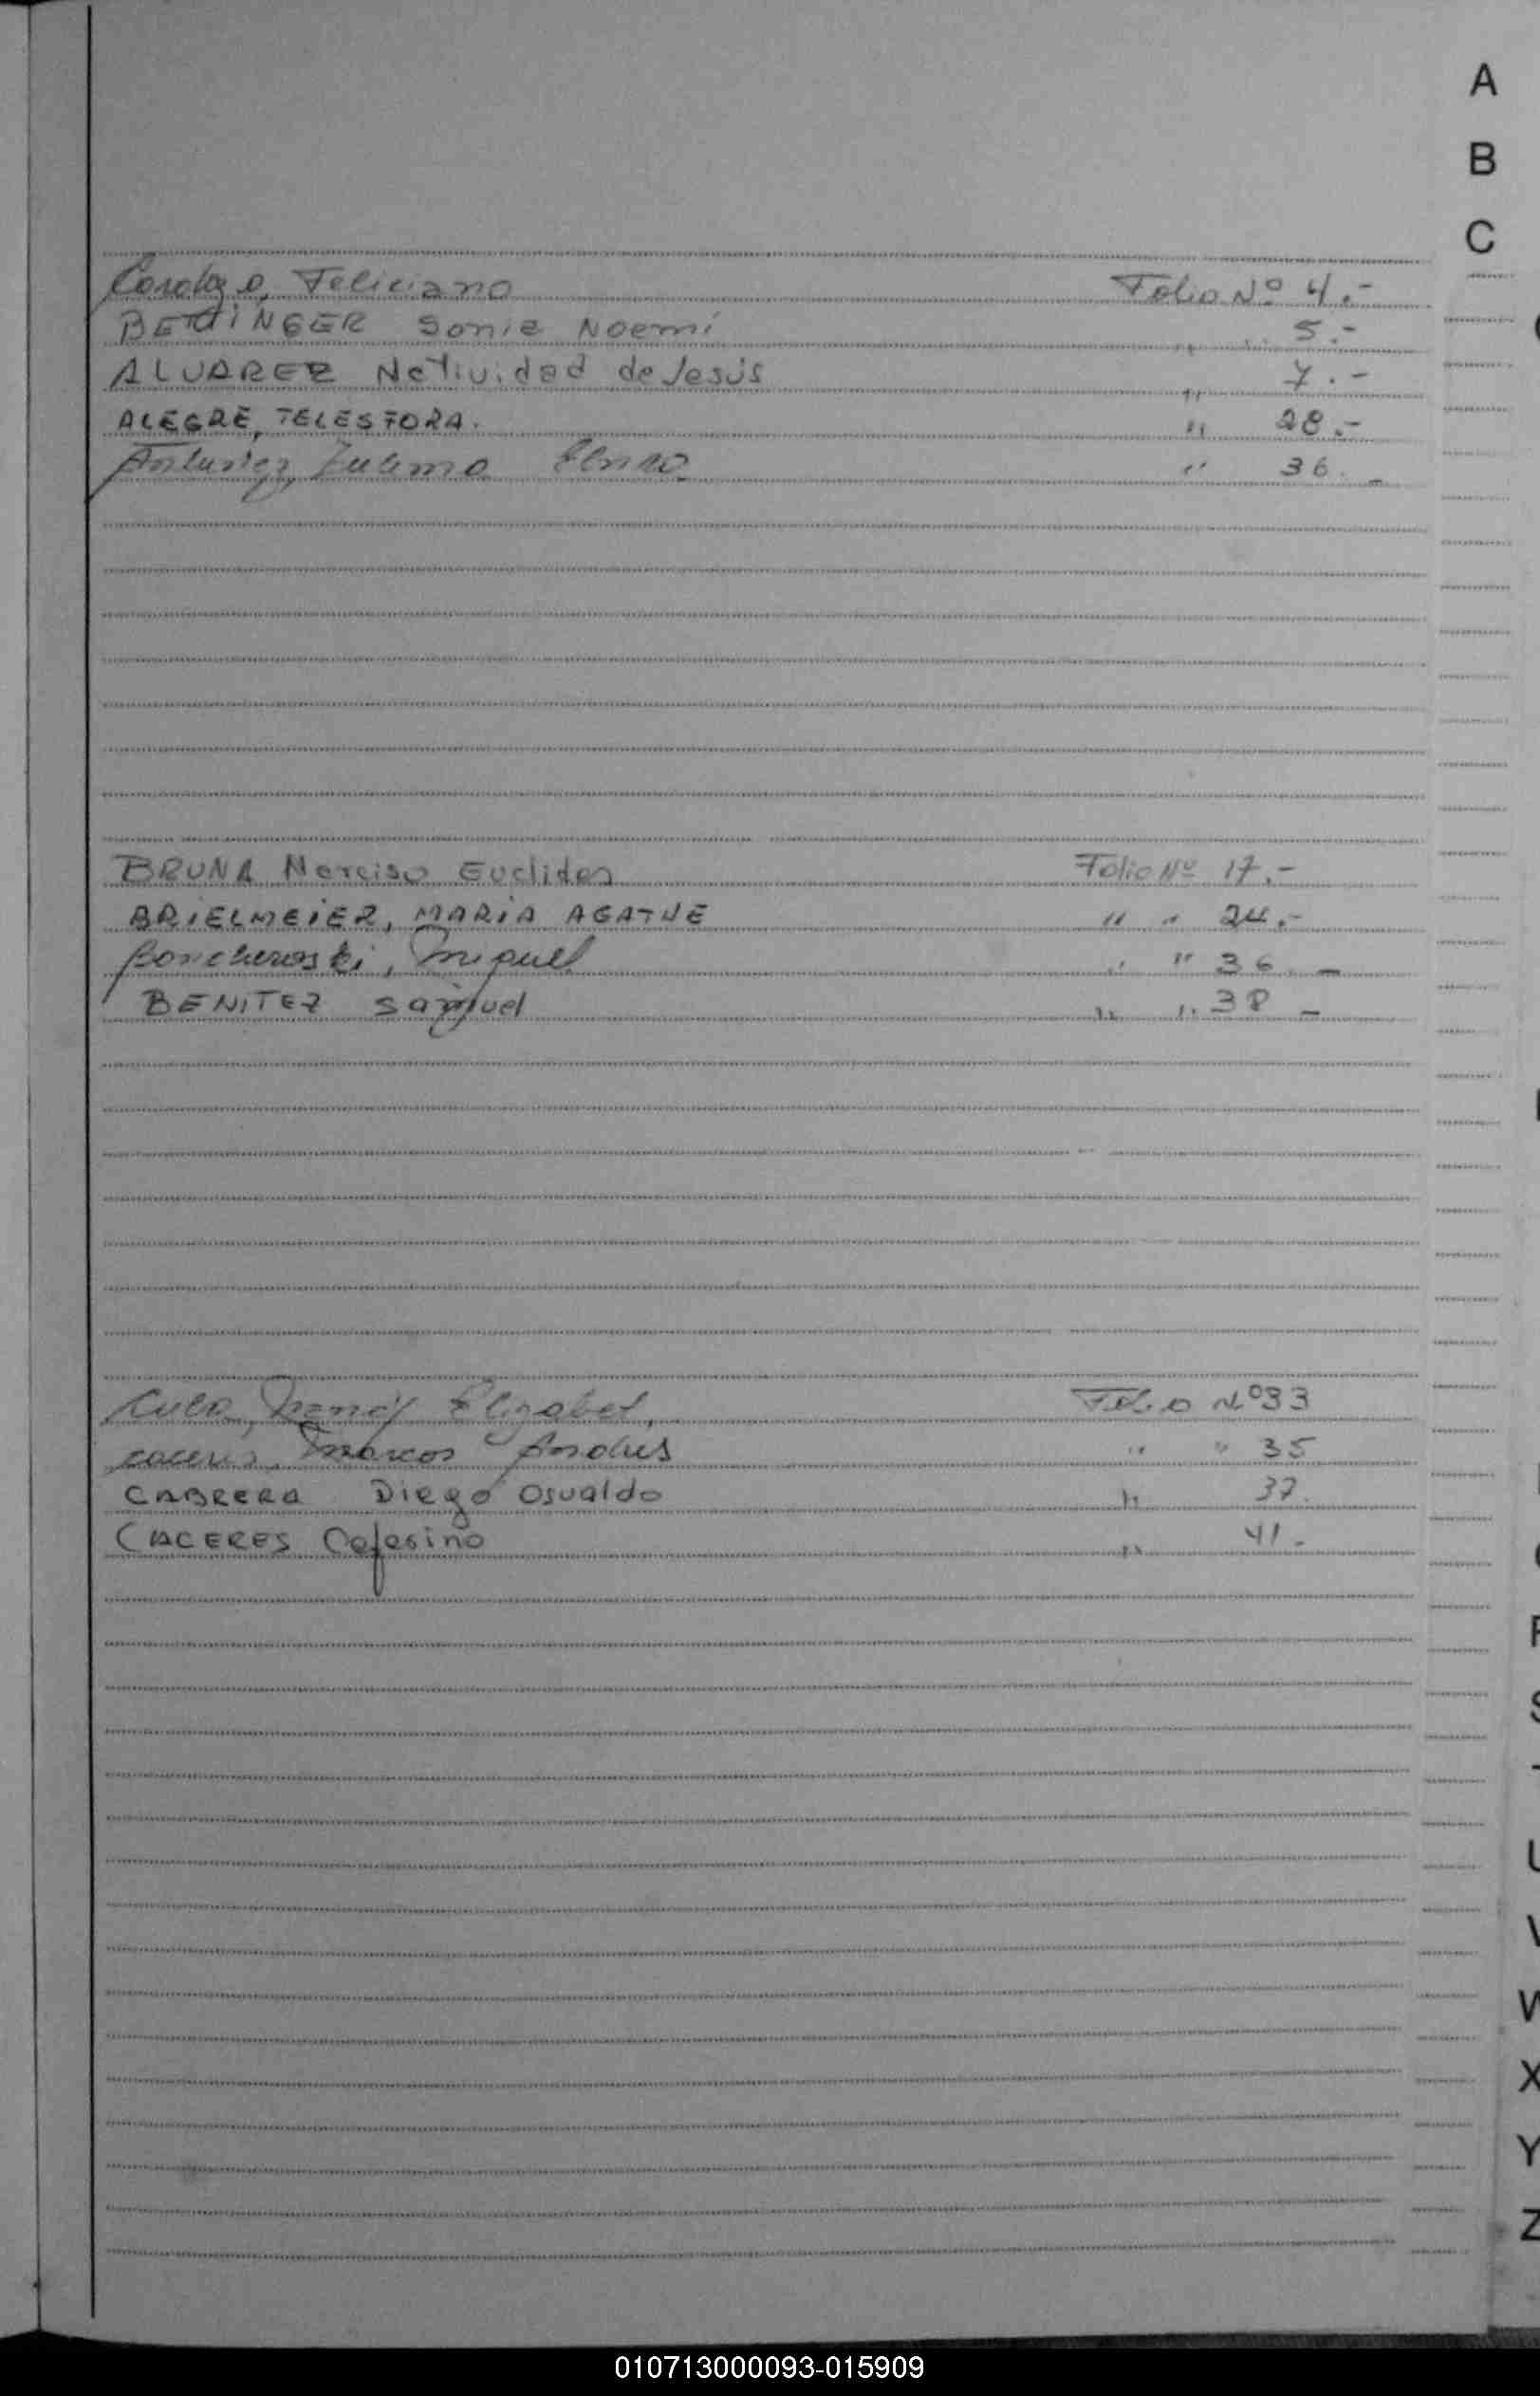 A
B
C
Feliciano Folio Nº 4.-
BETTINGER Sonia Noemí " " 5.-
ALVAREZ Natividad de Jesús " 7.-
ALEGRE, TELESFORA. " 28.-
Antunez, Zulema " 36.-
BRUNA Narciso Euclides Folio Nº 17.-
BRIELMEIER, MARIA AGATHE " " 24.-
Miguel " " 36.-
BENITEZ Samuel " " 38 -
Elizabet, Folio Nº 33
caceres, Marcos Andres " " 35
CABRERA Diego Osvaldo " 37.
CACERES Cefesino " 41.-
U
V
W
X
Y
Z
010713000093-015909